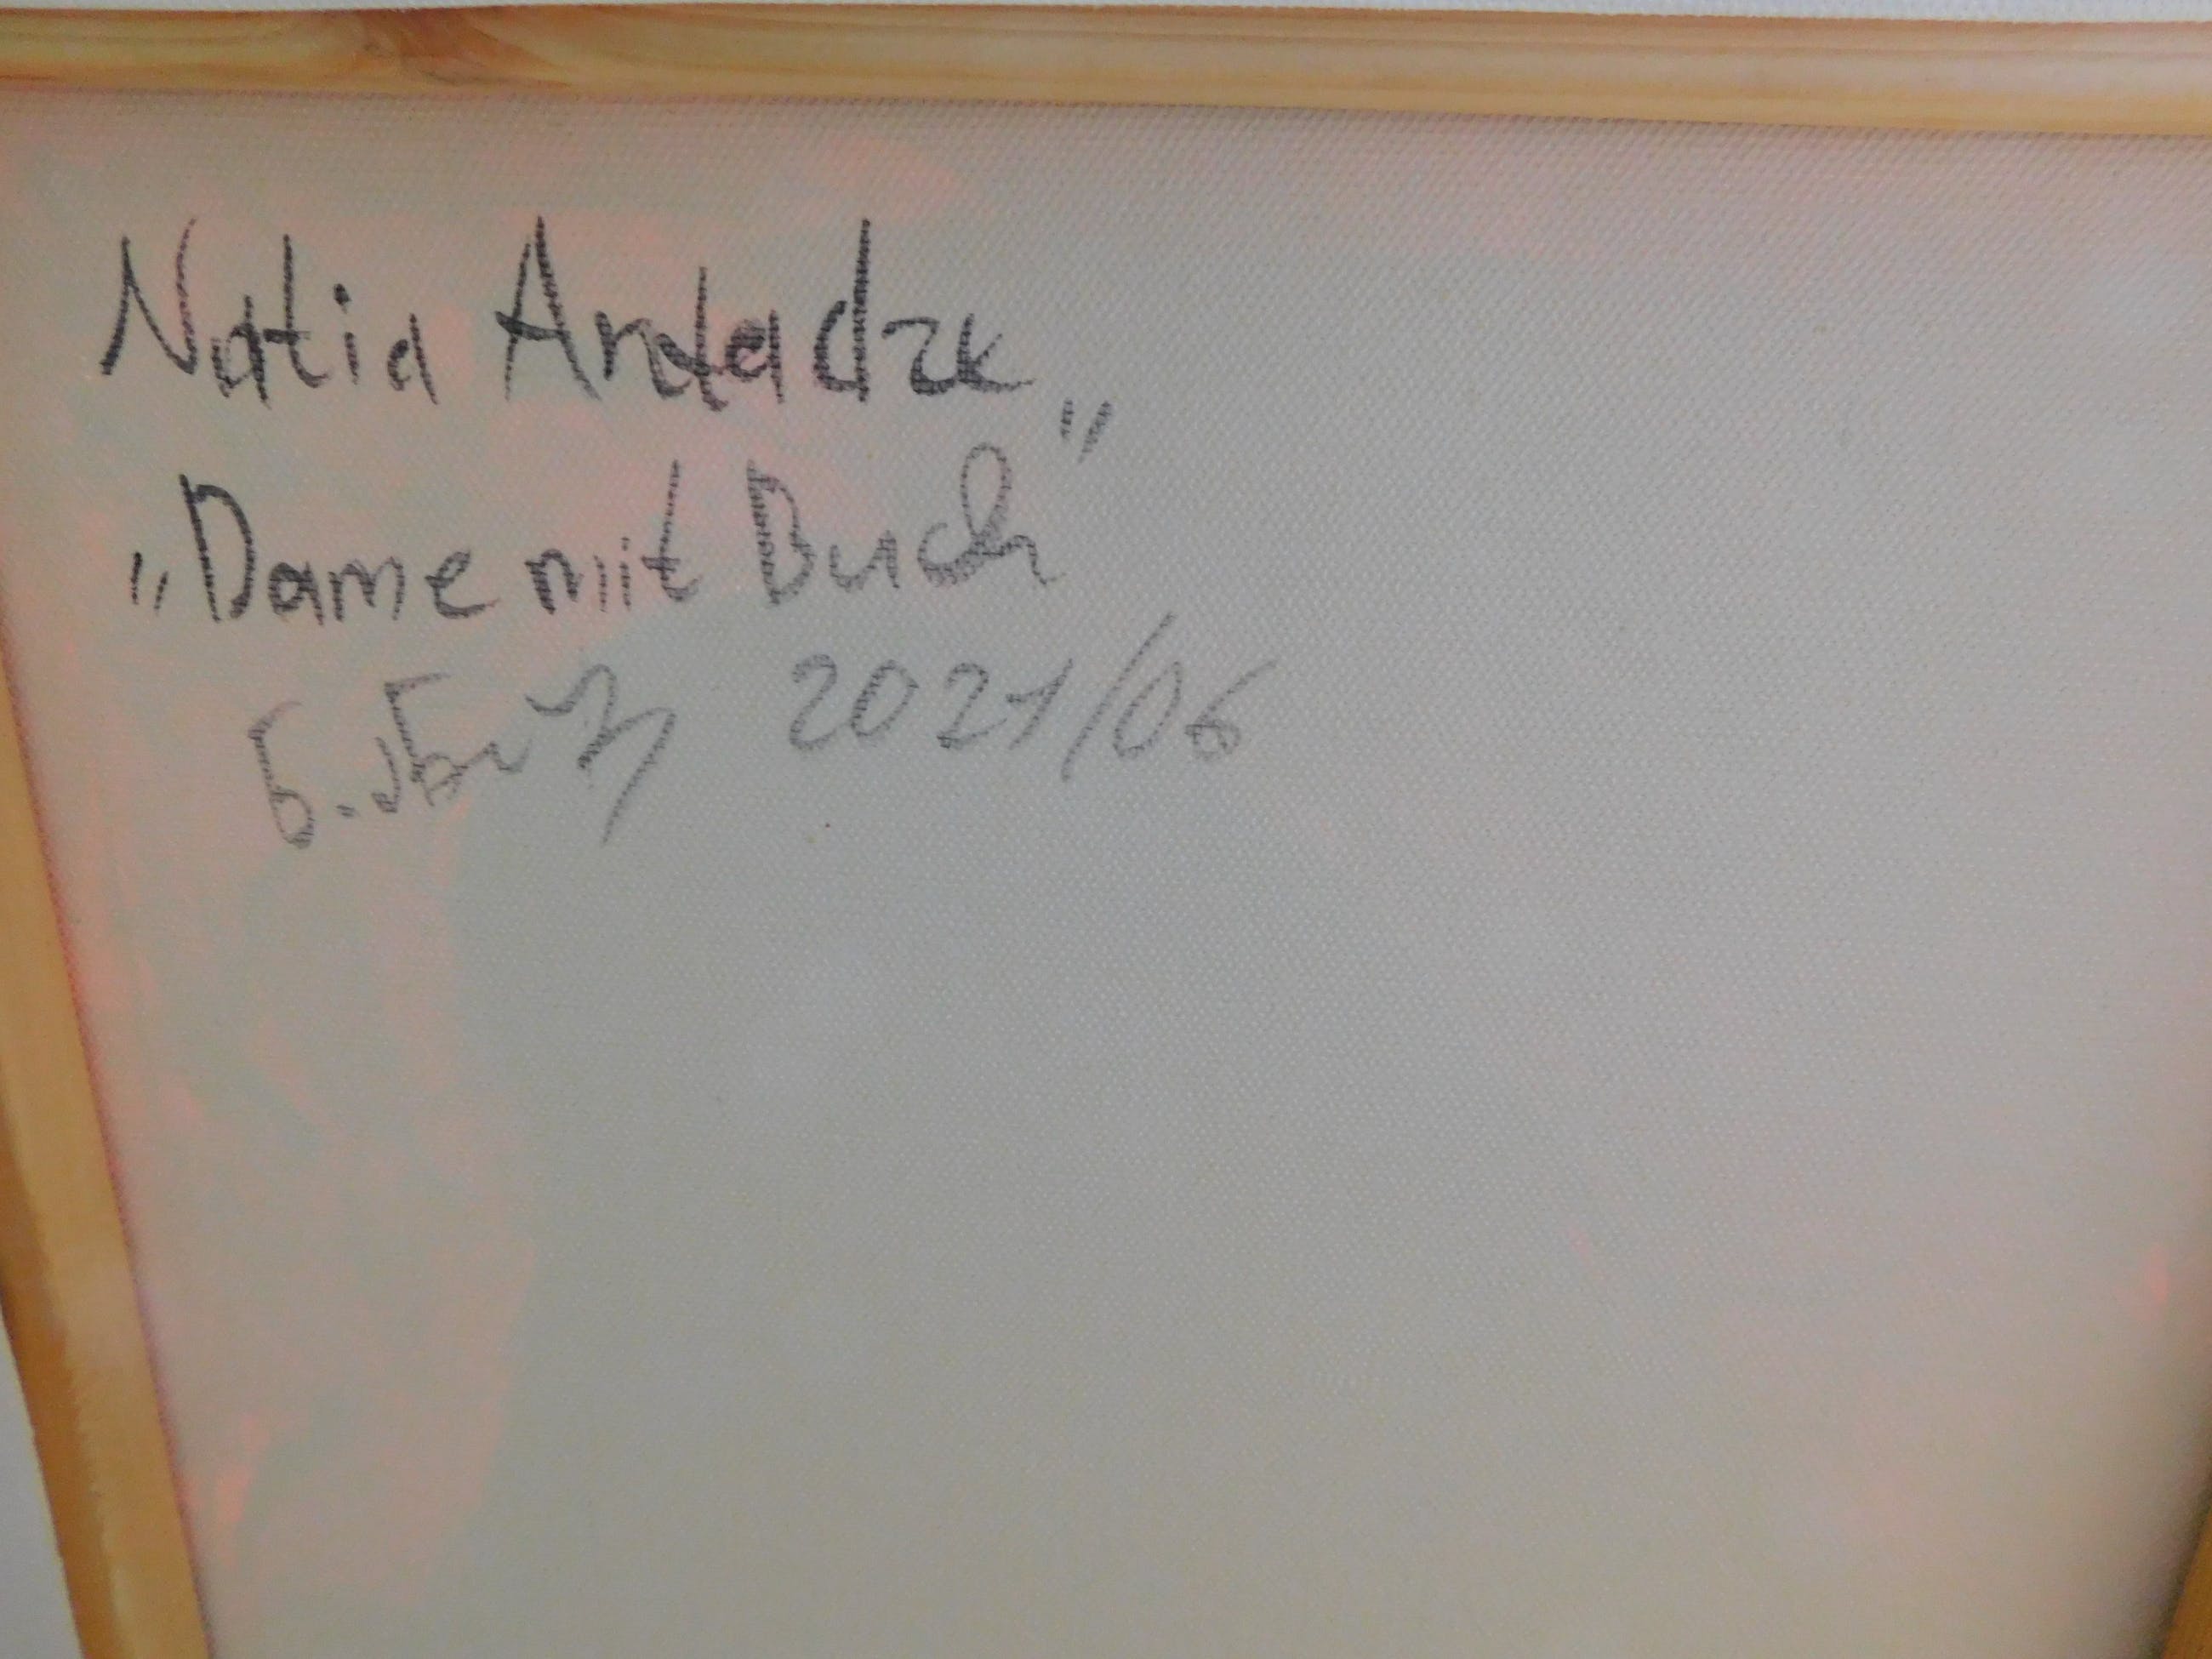 Natia Andadze
„Dame mit Buch"
2021/06